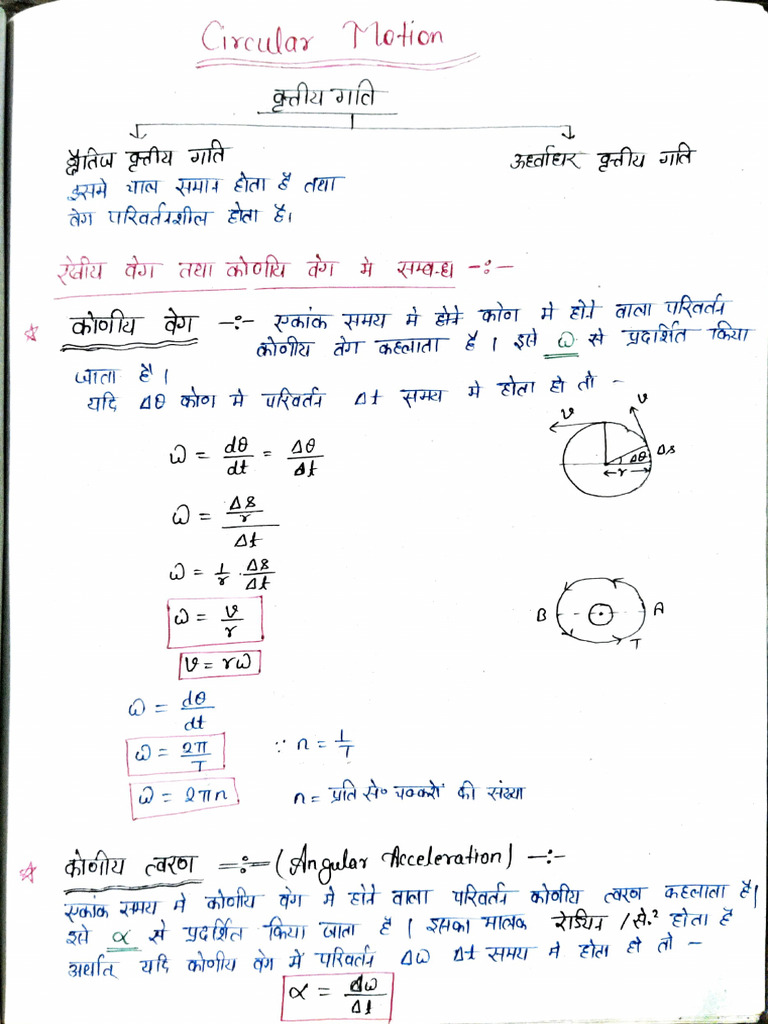 Circular Motion
वृत्तीय गति
क्षैतिज वृत्तीय गति
ऊर्ध्वाधर वृत्तीय गति
इसमे चाल समान होता है तथा
वेग परिवर्तनशील होता है।
रेखीय वेग तथा कोणीय वेग मे सम्बन्ध -:-
☆ कोणीय वेग -:- एकांक समय मे होने कोण मे होने वाला परिवर्तन
कोणीय वेग कहलाता है। इसे ω से प्रदर्शित किया
जाता है।
यदि Δθ कोण मे परिवर्तन Δt समय मे होता हो तो -
ω = dθ/dt = Δθ/Δt
v v Δs Δθ r
ω = (Δs/r)/Δt
ω = 1/r · Δs/Δt
ω = v/r
B A T
v = rω
ω = dθ/dt
ω = 2π/T ∵ n = 1/T
ω = 2πn n = प्रति से० चक्करों की संख्या
☆ कोणीय त्वरण -:- (Angular Acceleration) -:-
एकांक समय मे कोणीय वेग मे होने वाला परिवर्तन कोणीय त्वरण कहलाता है।
इसे α से प्रदर्शित किया जाता है। इसका मात्रक रेडियन /से.² होता है
अर्थात् यदि कोणीय वेग में परिवर्तन Δω Δt समय मे होता हो तो -
α = Δω/Δt